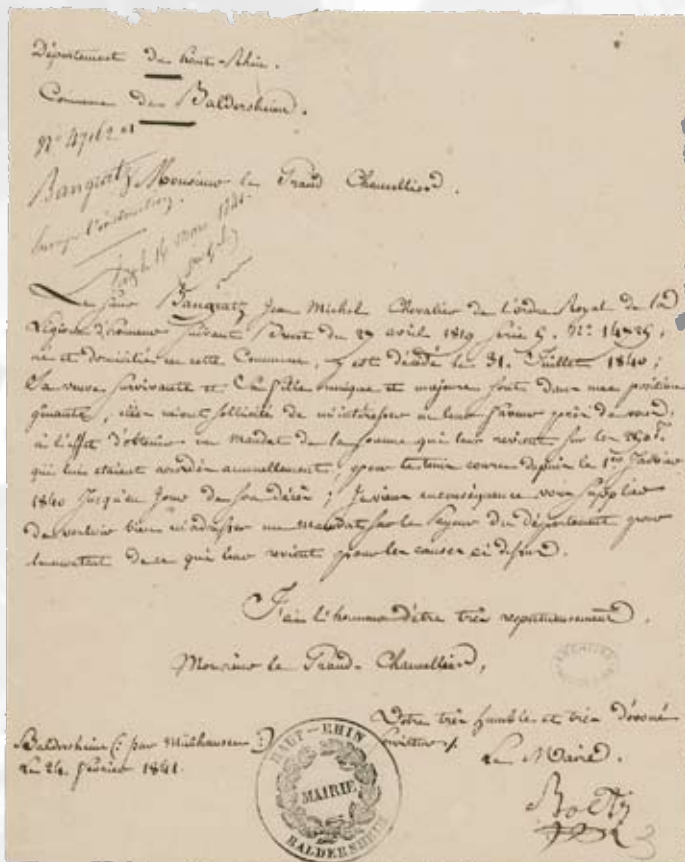 Département du haut-Rhin.
Commune de Baldersheim.
N° 47162
Bangratz
Monsieur le Grand Chancellier.
Le sieur Bangratz Jean Michel Chevalier de l'ordre Royal de la
Légion d'honneur suivant Brevet du 27 avril 1819 série
né et domicilié en cette Commune, y est décédé le 31. Juillet 1840;
Sa veuve survivante et Sa fille unique et majeure sont dans une position
gênante, elles m'ont sollicité de m'intéresser en leur faveur près de vous,
à l'effet d'obtenir un mandat de la somme qui leur revient sur les 250 f.
qui lui étaient accordés annuellement, pour le tems couru depuis le 1er Janvier
1840 jusqu'au jour de son décès; Je viens en conséquence vous supplier
de vouloir bien m'adresser un mandat sur le Payeur du département pour
le montant de ce qui leur revient pour les causes ci dessus.
J'ai l'honneur d'être très respectueusement,
Monsieur le Grand-Chancellier,
Votre très humble et très dévoué
Serviteur
Baldersheim (: par Mulhausen :)
Le 24. février 1841.
Le Maire.
HAUT-RHIN
MAIRIE
BALDERSHEIM